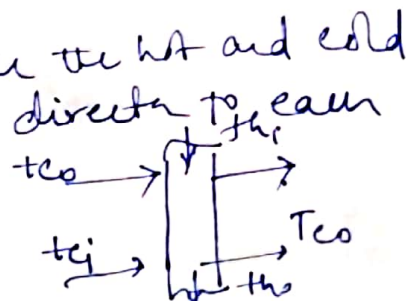 the hot and cold
directn to each
thi
tco
Tco
tci
tho